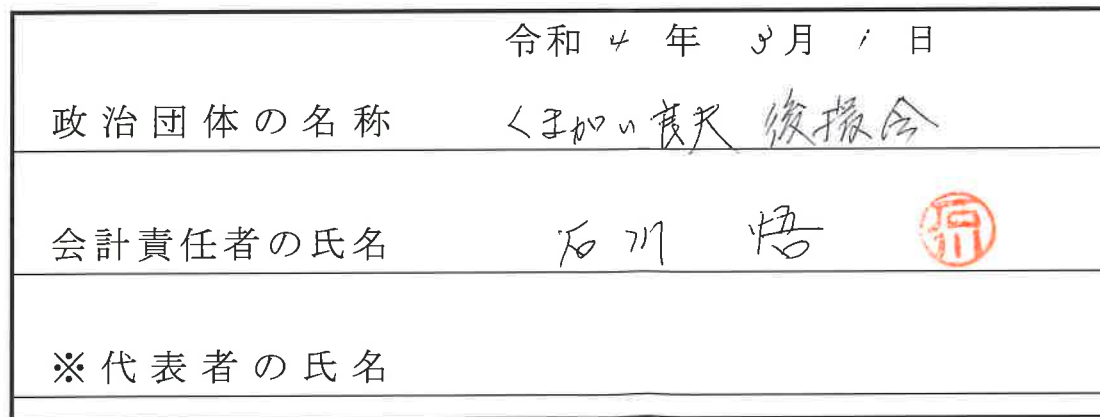 令和 4 年 3月 1 日
政治団体の名称 くまがい 夫 後援会
会計責任者の氏名 石川 悟 石川
※代表者の氏名